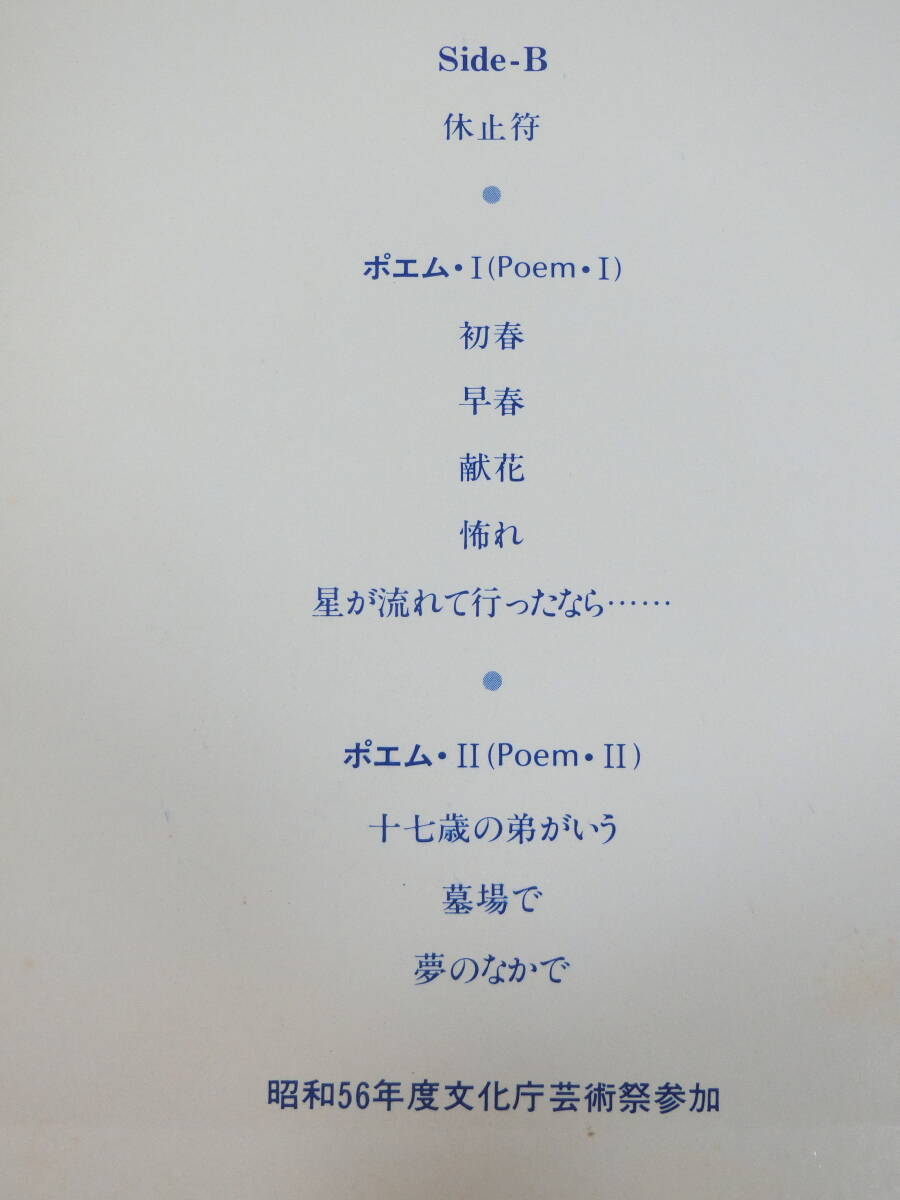 Side-B
休止符
●
ポエム・Ⅰ(Poem・Ⅰ)
初春
早春
献花
怖れ
星が流れて行ったなら……
●
ポエム・Ⅱ(Poem・Ⅱ)
十七歳の弟がいう
墓場で
夢のなかで
昭和56年度文化庁芸術祭参加